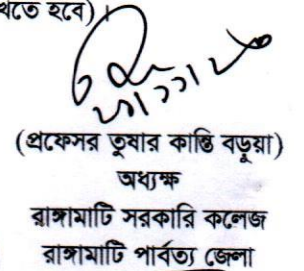 হবে)।
(প্রফেসর তুষার কান্তি বড়ুয়া)
অধ্যক্ষ
রাঙ্গামাটি সরকারি কলেজ
রাঙ্গামাটি পার্বত্য জেলা